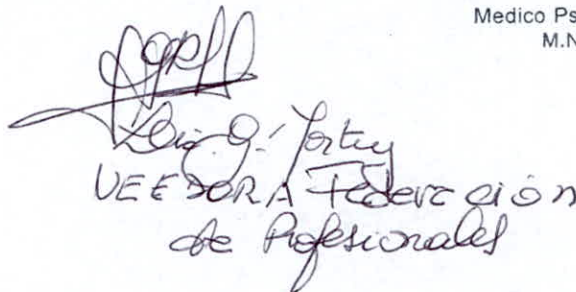 Medico Ps
M.N
VEEDORA Federación
de Profesionales